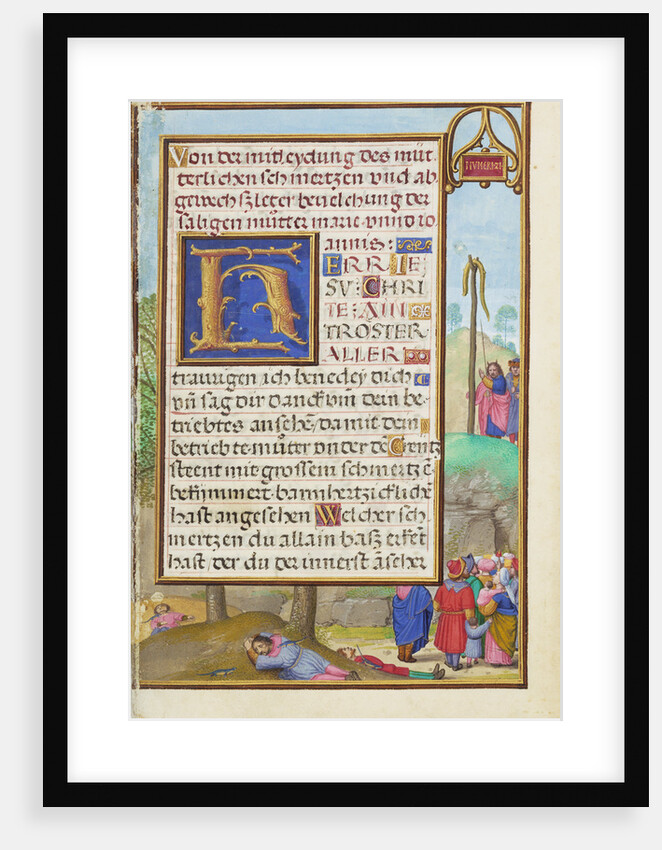 Von der mitleydung des müt
terlichen schmertzen und ab
gewechszleter bevelchung der
säligen mütter marie vnnd io
annis:
HERR IE
SV: CHRI
TE: AIN
TROSTER
ALLER
traurigen, ich benedey dich
vn̄ sag dir danck vm̄ dein be-
triebtes ansehē, da mit dein
betriebte mütter vnder dē Creutz
steent mit grossem schmertzē
bekīmmert, barmhertzicklichē
hast angesehen Welcher sch
mertzen du allain hasz
hast, der du der innerst
NUMERI 21